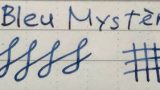 Bleu Mystèr